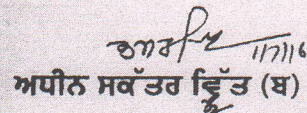 11/7/16
ਅਧੀਨ ਸਕੱਤਰ ਵਿੱਤ (ਬ)